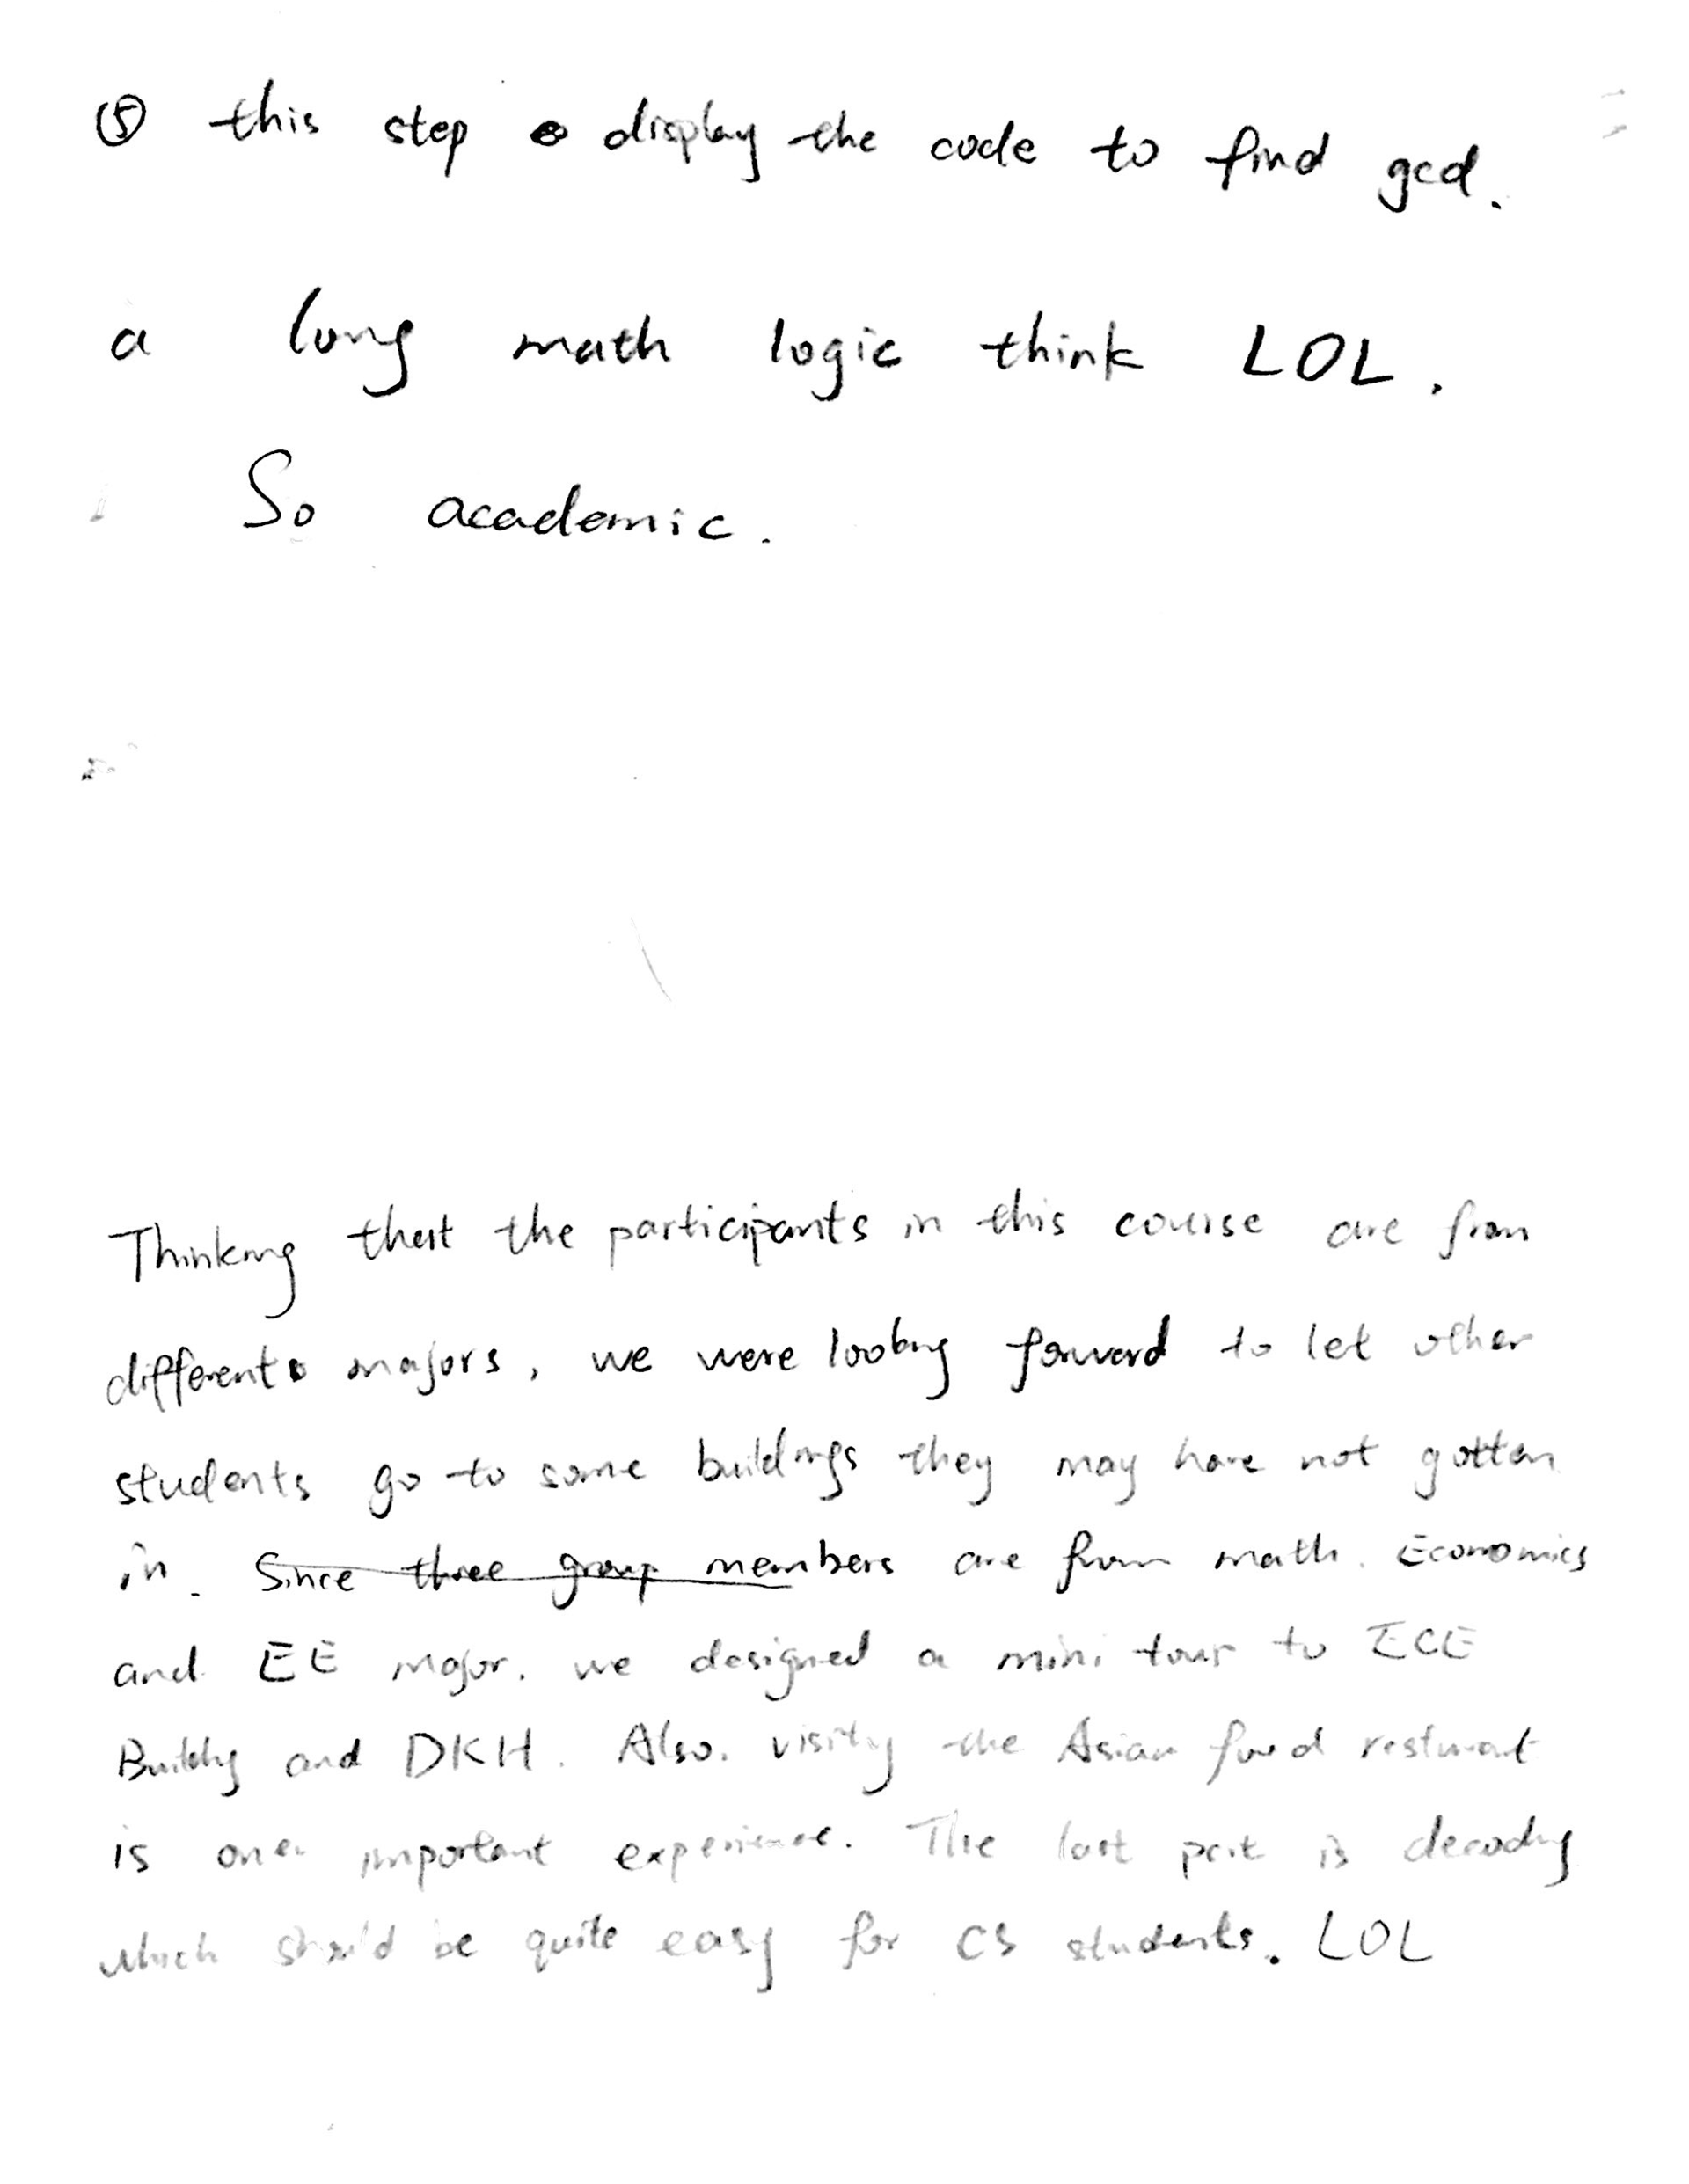 ⑤ this step display the code to find gcd.
a long math logic think LOL.
So academic.
Thinking that the participants in this course are from
different majors, we were looking forward to let other
students go to some buildings they may have not gotten
in. Since three group members are from math. Economics
and EE major. we designed a mini tour to ECE
Building and DKH. Also. visiting the Asian food resturant
is one important experience. The last part is decoding
which should be quite easy for CS students. LOL